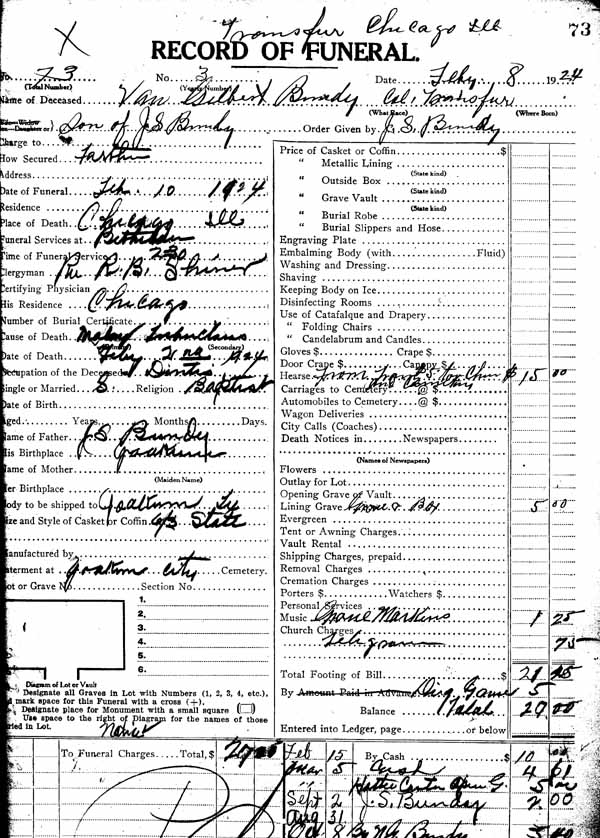 Transfur Chicago Ill
73
X
RECORD OF FUNERAL.
73 No. 3 Date Feby 8 1924
(Total Number) (Yearly Number)
Name of Deceased Van Gilbert Bundy Col. Transfur
(What Race) (Where Born)
Son of J.S Bundy Order Given by J. S. Bundy
Charge to
How Secured
Address
Date of Funeral Feb. 10 1924
Residence
Place of Death Chicago Ill
Funeral Services at
Time of Funeral Service 2:30
Clergyman Rev R. B.
Certifying Physician
His Residence Chicago
Number of Burial Certificate
Cause of Death
(Primary) (Secondary)
Date of Death Feby 2nd 1924
Occupation of the Deceased
Single or Married S Religion Baptist
Date of Birth
Aged Years Months Days.
Name of Father J.S. Bundy
His Birthplace Yoakum
Name of Mother
(Maiden Name)
Her Birthplace
Body to be shipped to Yoakum
Size and Style of Casket or Coffin 6/3 State
Manufactured by
Interment at Yoakum City Cemetery.
Lot or Grave No. Section No.
1.
2.
3.
4.
5.
6.
Diagram of Lot or Vault
Designate all Graves in Lot with Numbers (1, 2, 3, 4, etc.),
mark space for this Funeral with a cross (+).
Designate place for Monument with a small square
Use space to the right of Diagram for the names of those
Buried in Lot.
To Funeral Charges Total, $
Price of Casket or Coffin $
" Metallic Lining
(State kind)
" Outside Box
(State kind)
" Grave Vault
(State kind)
" Burial Robe
" Burial Slippers and Hose
Engraving Plate
Embalming Body (with Fluid)
Washing and Dressing
Shaving
Keeping Body on Ice
Disinfecting Rooms
Use of Catafalque and Drapery
" Folding Chairs
" Candelabrum and Candles
Gloves $ Crape $
Door Crape $ Canopy $
Hearse from to $ 15 00
Carriages to Cemetery @ $ and Cemetery
Automobiles to Cemetery @ $
Wagon Deliveries
City Calls (Coaches)
Death Notices in Newspapers
(Names of Newspapers)
Flowers
Outlay for Lot
Opening Grave of Vault
Lining Grave Grave & Box 5 00
Evergreen
Tent or Awning Charges
Vault Rental
Shipping Charges, prepaid
Removal Charges
Cremation Charges
Porters $ Watchers $
Personal Services
Music 1 25
Church Charges
Telegram 75
Total Footing of Bill $
By Amount Paid in Advance 5
Balance Total 00
Entered into Ledger, page or below
Feb 15 By Cash $ 10
Mar 5 Cash 4
Hattie 5
Sept 2 J.S. Bunday 2 00
Aug 31
Oct 8 By